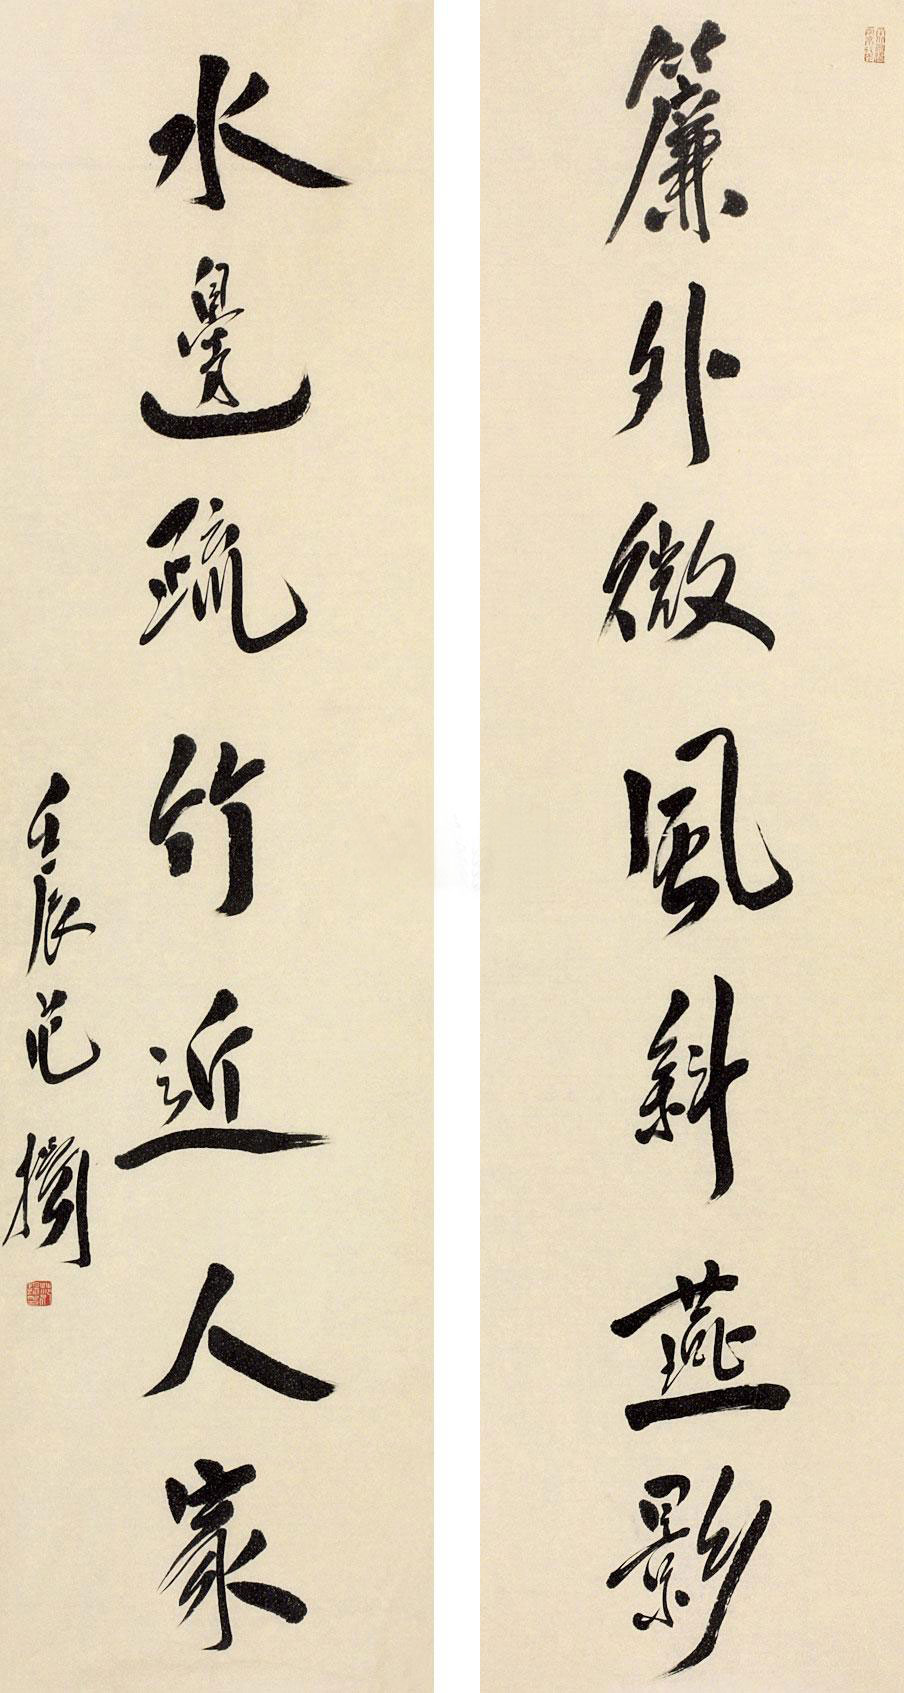 簾外微風斜燕影
水邊疏竹近人家
壬辰范擴